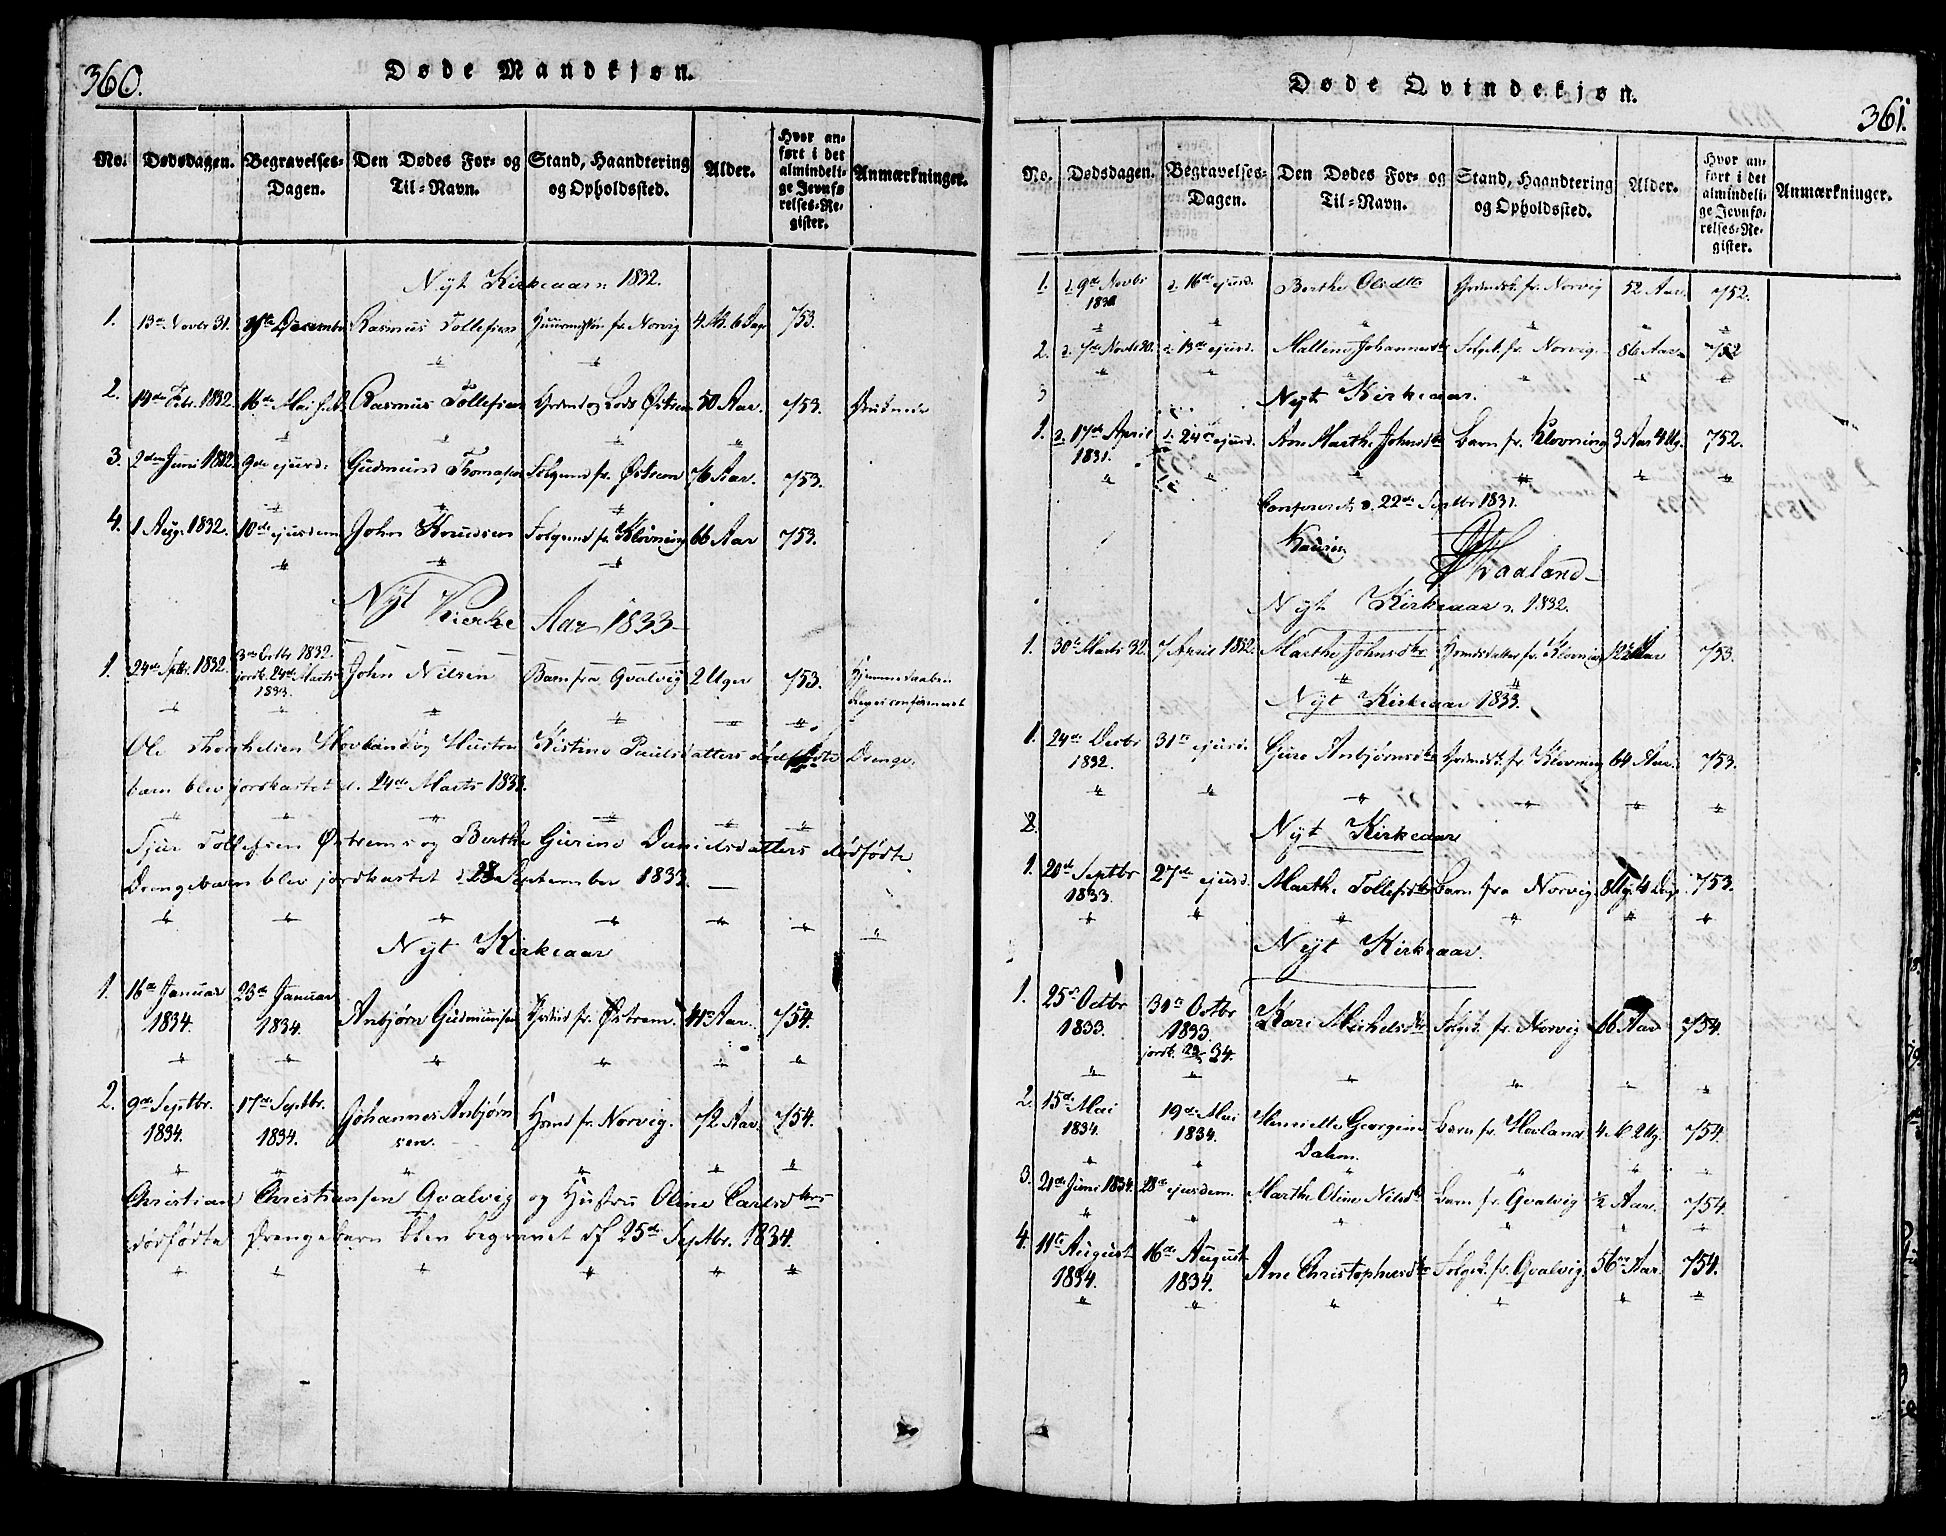 360.
Døde Mandkjøn.
No. Dødsdagen. Begravelses-Dagen. Den Dødes For- og Til-Navn. Stand, Haandtering og Opholdssted. Alder. Hvor anført i det almindelige Jevnførelses-Register. Anmærkninger.
Nyt Kirkeaar 1832.
1. 13de Novbr 31. Decembr Rasmus Tollefsen fr. Norvig 4 M. 6 Dage 753.
2. 14de Febr. 1832. 16de Mai Rasmus Tollefsen Østrem 50 Aar. 753.
3. 2den Juni 1832. 9de ejusd. Gudmund Thomasen Folgemd fr. Østrem 76 Aar. 753.
4. 1 Aug. 1832. 10de ejusdem John Knudsen Folgemd fr. Kløvning 66 Aar 753.
Nyt Kierke Aar 1833
1. 24de Septr. 1832. 3die Octbr 1832. jordk. 24de Marts 1833. John Nilsen Barn fra Qvalvig 2 Uger 753. Hjemmedaaben
Ole Hovland og Hustru Kistine Paulsdatters dødfødte Drenge-
barn blev jordkastet d. 24de Marts 1833.
Sjur Tollefsen Østrems og Berthe Gurine Danielsdatters dødfødte
Drengebarn blev jordkastet d. 28 September 1833.
Nyt Kirkeaar
1. 16de Januar 1834. 23de Januar 1834. Anbjørn Gudmundsen fr. Østrem. 43 Aar. 754.
2. 9de Septbr. 1834. 17de Septbr. 1834. Johannes Anbjørnsen. Hsmd fr. Norvig. 72 Aar. 754.
Christian Christiansen Qvalvig og Hustru Oline Carlsdtrs
dødfødte Drengebarn blev begravet d. 25de Septbr. 1834.
361.
Døde Qvindekjøn.
No. Dødsdagen. Begravelses-Dagen. Den Dødes For- og Til-Navn. Stand, Haandtering og Opholdssted. Alder. Hvor anført i det almindelige Jevnførelses-Register. Anmærkninger.
1. d. 9de Novbr d. 16de ejusd. Berthe Olsdtr fr. Norvig 52 Aar. 752.
2. d. 7de Novbr 30. d. 13de ejusd. Mallene Johannesdtr Folgek. fr. Norvig. 86 Aar 752
Nyt Kirkeaar.
1. d. 17de April 1831. d. 24de ejusd. Ane Marthe Johnsdtr Barn fr. Kløvning 3 Aar 4 Ug. 752.
Confereret d. 22de Septbr 1831.
Haaland
Nyt Kirkeaar 1832.
1. 30te Marts 32. 7 April 1832. Marthe Johnsdtr fr. Kløvning Aar 753.
Nyt Kirkeaar 1833.
1. 24de Decbr 1832. 31te ejusd. Gjuro Anbjørnsdtr fr. Kløvning 64 Aar. 753.
2. Nyt Kirkeaar
1. 20de Septbr 1833. 27de ejusd. Marthe Tollefsdtr Barn fra Norvig 8 Ug. 4 Dage 753.
Nyt Kirkeaar.
1. 25de Octbr 1833. 31te Octbr 1833. jordk. 34. Kari Michelsdtr Folgek. fr. Norvig 66 Aar 754.
2. 15de Mai 1834. 19de Mai 1834. Henriette Georgine Dahm. Barn fr. Hovland. 4 M. 2 Ug. 754.
3. 21de Juni 1834. 28de ejusdem. Marthe Oline Nilsdtr Barn fr. Qvalvig 1/2 Aar. 754.
4. 11te August 1834. 16de August 1834. Ane Christophersdtr Folgek. fr. Qvalvig. 56 Aar. 754.